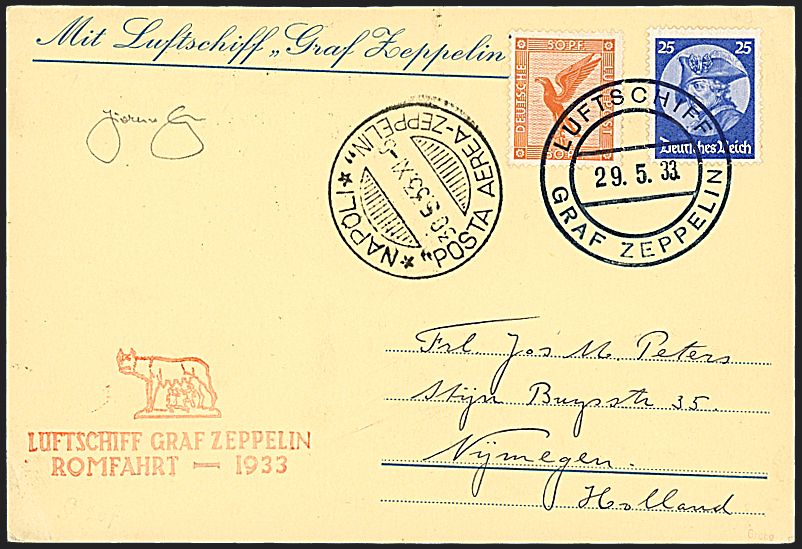 Mit Luftschiff „Graf Zeppelin"
50 PF.
DEUTSCHE
50 PF
25 25
Deutsches Reich
LUFTSCHIFF
29. 5. 33.
GRAF ZEPPELIN
"POSTA AEREA-ZEPPELIN"
30.5.33.XI-
* NAPOLI *
Frl Jos M. Peters
Stijn Buysstr 35.
Nÿmegen.
Holland
LUFTSCHIFF GRAF ZEPPELIN
ROMFAHRT — 1933